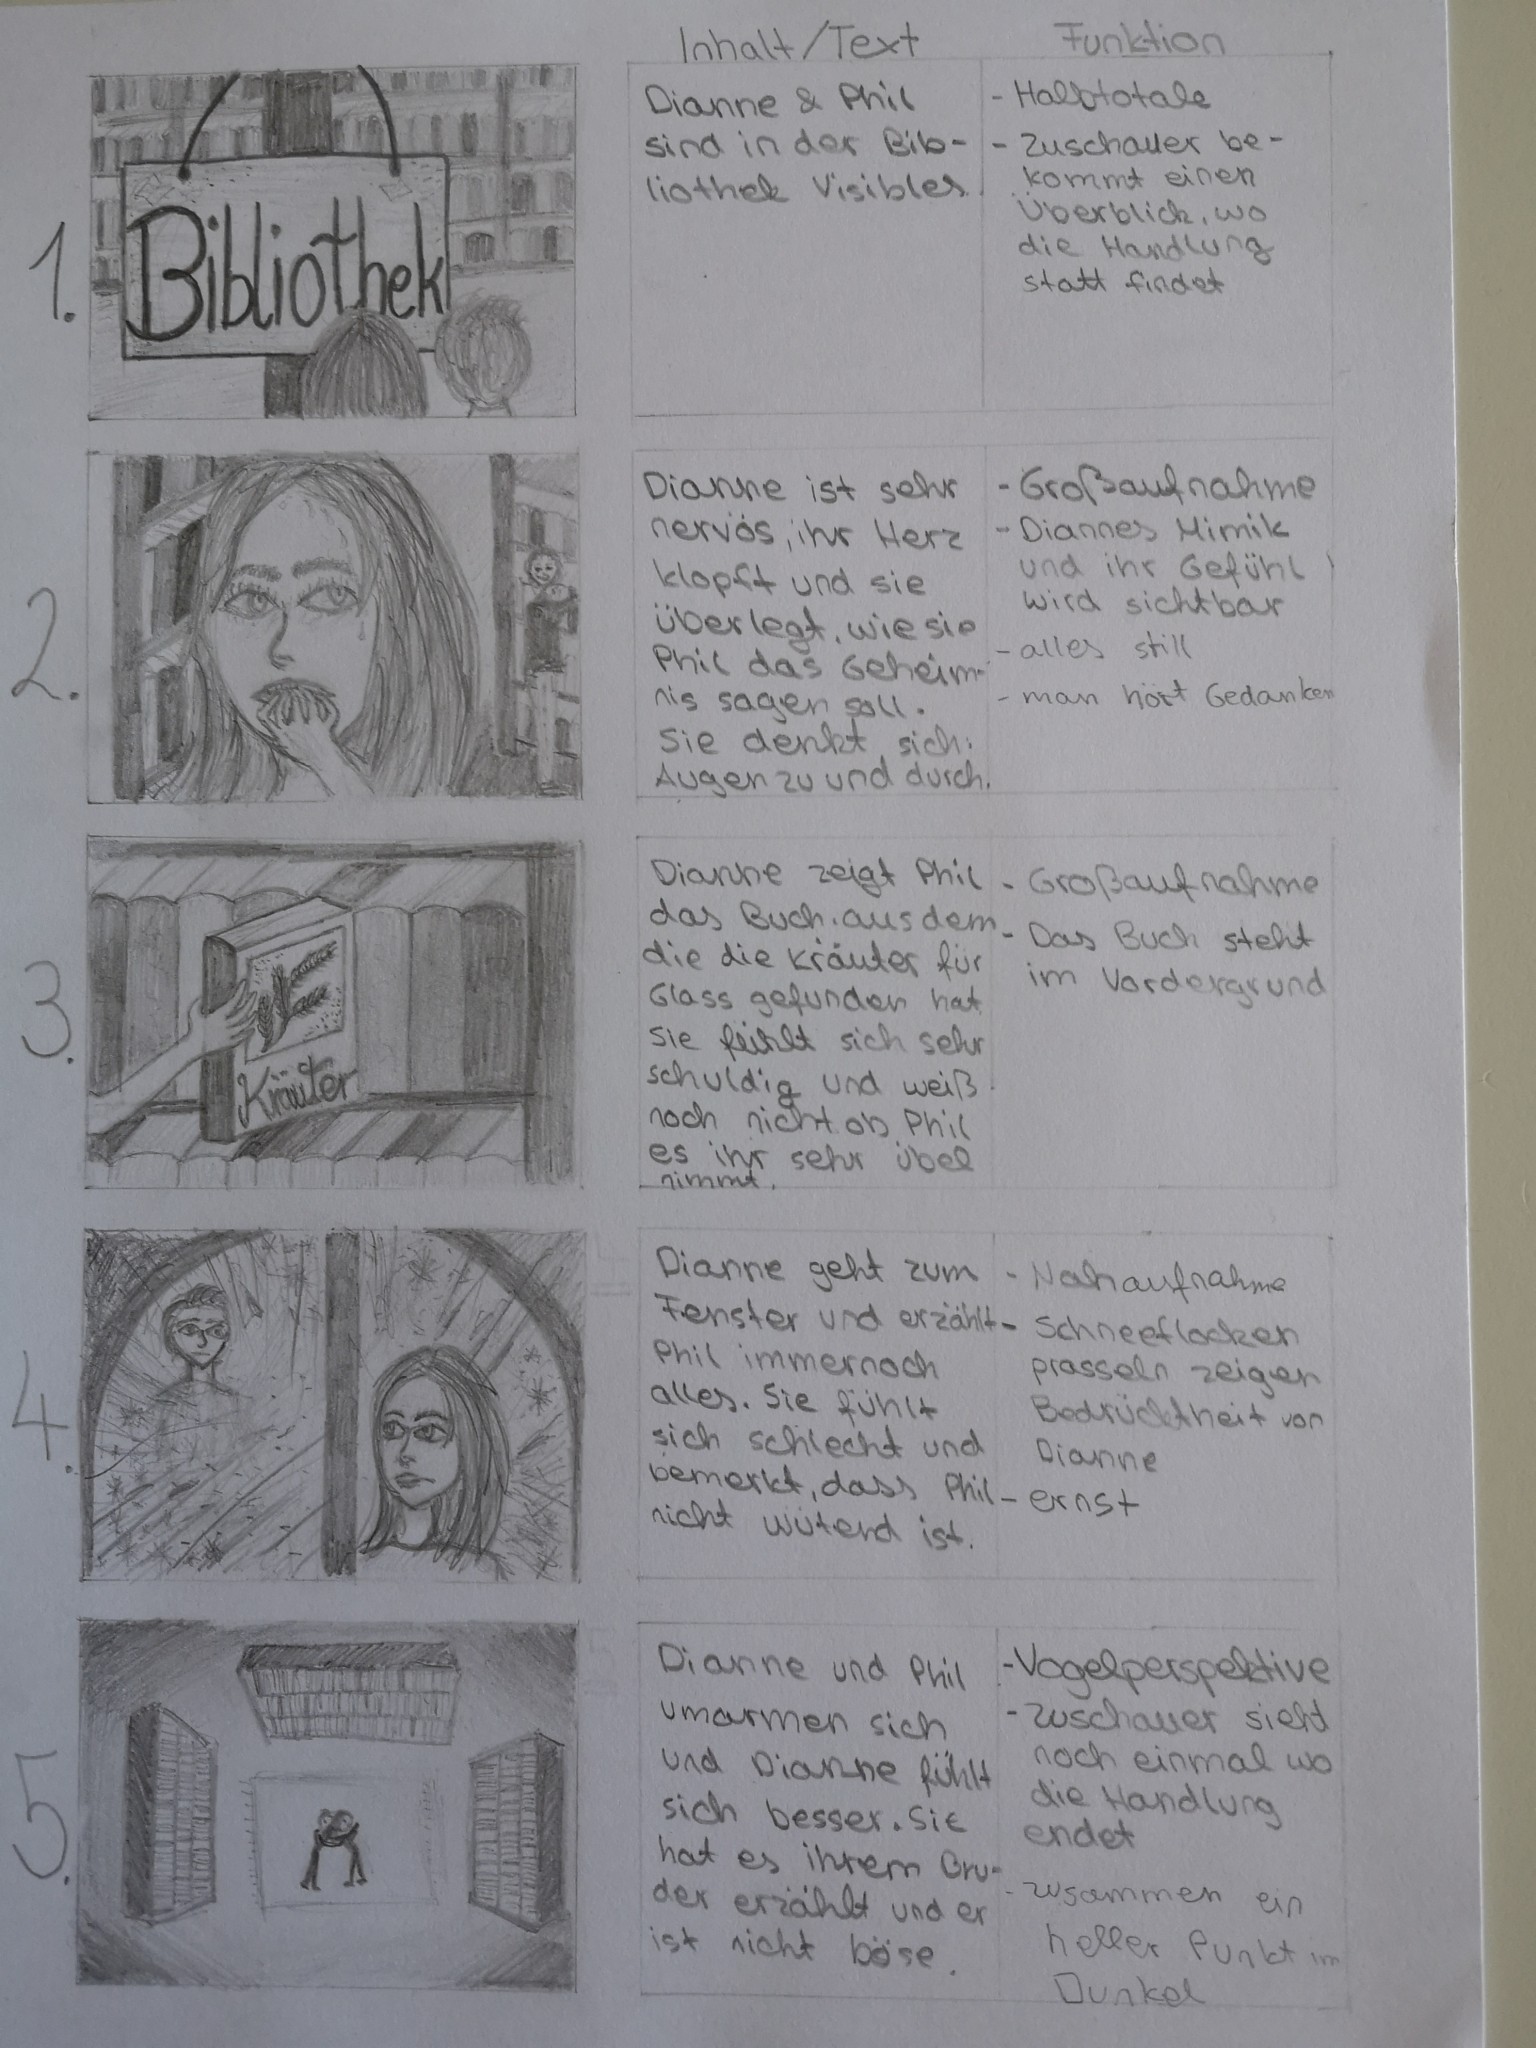 Inhalt/Text
Funktion
1.
Bibliothek
Dianne & Phil
sind in der Bib-
liothek Visibles.
- Halbtotale
- Zuschauer be-
kommt einen
Überblick, wo
die Handlung
statt findet
2.
Dianne ist sehr
nervös, ihr Herz
klopft und sie
überlegt, wie sie
Phil das Geheim-
nis sagen soll.
Sie denkt sich:
Augen zu und durch.
- Großaufnahme
- Diannes Mimik
und ihr Gefühl
wird sichtbar
- alles still
- man hört Gedanken
3.
Kräuter
Dianne zeigt Phil
das Buch, aus dem
die die Kräuter für
Glass gefunden hat
Sie fühlt sich sehr
schuldig und weiß
noch nicht ob Phil
es ihr sehr übel
nimmt.
- Großaufnahme
- Das Buch steht
im Vordergrund
4.
Dianne geht zum
Fenster und erzählt
Phil immernoch
alles. Sie fühlt
sich schlecht und
bemerkt, dass Phil
nicht wütend ist.
- Nahaufnahme
- Schneeflocken
prasseln zeigen
Bedrücktheit von
Dianne
- ernst
5.
Dianne und Phil
umarmen sich
und Dianne fühlt
sich besser. Sie
hat es ihrem Bru-
der erzählt und er
ist nicht böse.
- Vogelperspektive
- Zuschauer sieht
noch einmal wo
die Handlung
endet
- zusammen ein
heller Punkt im
Dunkel